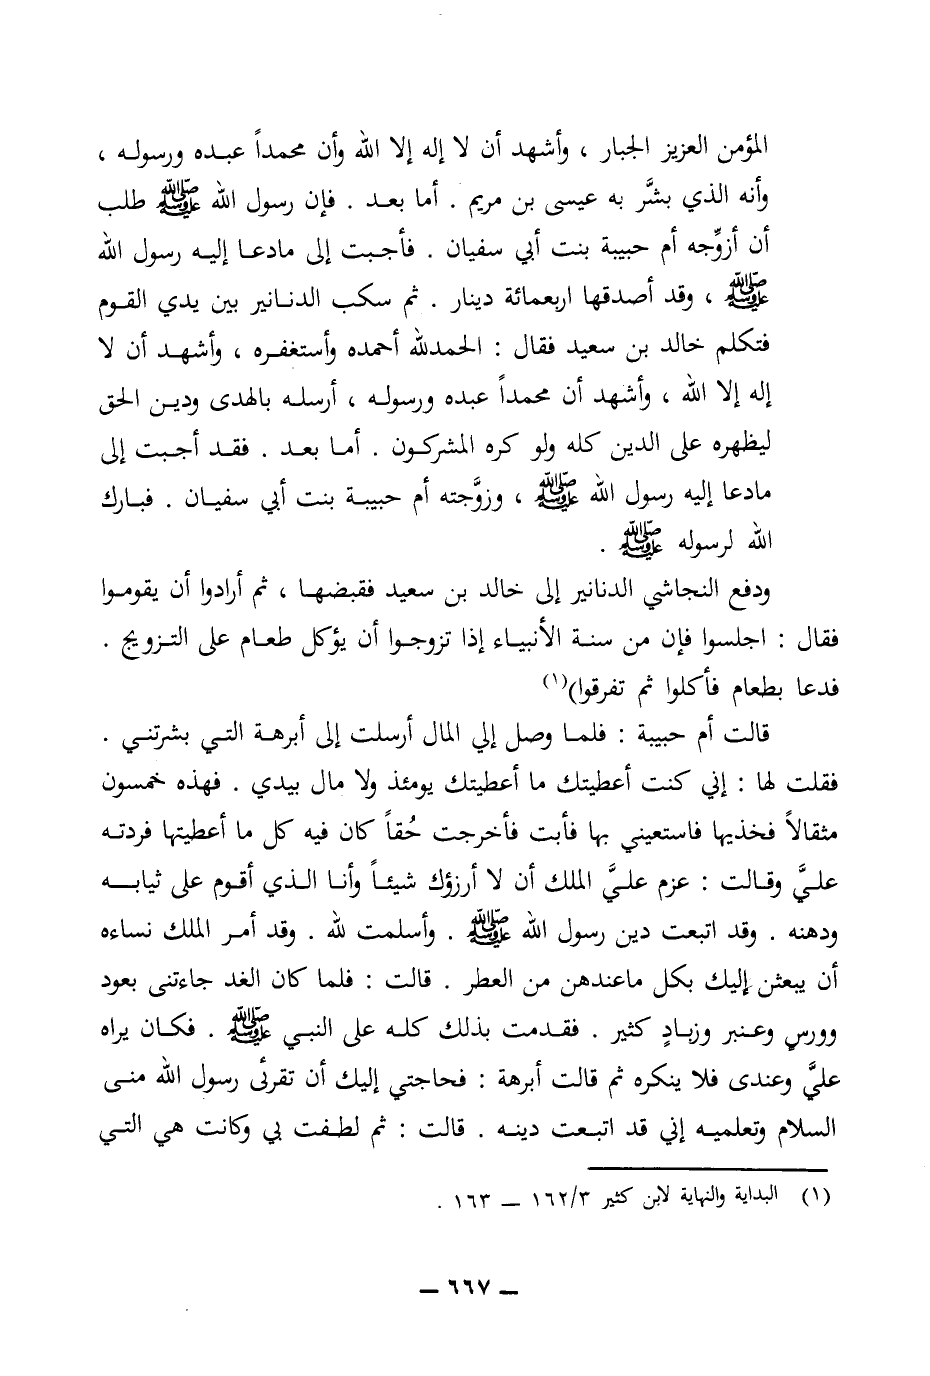 المؤمن العزيز الجبار ، وأشهد أن لا إله إلا الله وأن محمداً عبده ورسوله ،
وأنه الذي بشَّر به عيسى بن مريم . أما بعد . فإن رسول الله ﷺ طلب
أن أزوِّجه أم حبيبة بنت أبي سفيان . فأجبت إلى مادعا إليه رسول الله
ﷺ ، وقد أصدقها اربعمائة دينار . ثم سكب الدنانير بين يدي القوم
فتكلم خالد بن سعيد فقال : الحمدلله أحمده وأستغفره ، وأشهد أن لا
إله إلا الله ، وأشهد أن محمداً عبده ورسوله ، أرسله بالهدى ودين الحق
ليظهره على الدين كله ولو كره المشركون . أما بعد . فقد أجبت إلى
مادعا إليه رسول الله ﷺ ، وزوَّجته أم حبيبة بنت أبي سفيان . فبارك
الله لرسوله ﷺ .
ودفع النجاشي الدنانير إلى خالد بن سعيد فقبضها ، ثم أرادوا أن يقوموا
فقال : اجلسوا فإن من سنة الأنبياء إذا تزوجوا أن يؤكل طعام على التزويج .
فدعا بطعام فأكلوا ثم تفرقوا)(١)
قالت أم حبيبة : فلما وصل إلي المال أرسلت إلى أبرهة التي بشرتني .
فقلت لها : إني كنت أعطيتك ما أعطيتك يومئذ ولا مال بيدي . فهذه خمسون
مثقالاً فخذيها فاستعيني بها فأبت فأخرجت حُقاً كان فيه كل ما أعطيتها فردته
عليَّ وقالت : عزم عليَّ الملك أن لا أرزؤك شيئاً وأنا الذي أقوم على ثيابه
ودهنه . وقد اتبعت دين رسول الله ﷺ . وأسلمت لله . وقد أمر الملك نساءه
أن يبعثن إليك بكل ماعندهن من العطر . قالت : فلما كان الغد جاءتنى بعود
وورسٍ وعنبر وزبادٍ كثير . فقدمت بذلك كله على النبي ﷺ . فكان يراه
عليَّ وعندى فلا ينكره ثم قالت أبرهة : فحاجتي إليك أن تقرئى رسول الله منى
السلام وتعلميه إني قد اتبعت دينه . قالت : ثم لطفت بي وكانت هي التي
(١) البداية والنهاية لابن كثير ١٦٢/٣ ــ ١٦٣ .
ــ ٦٦٧ ــ